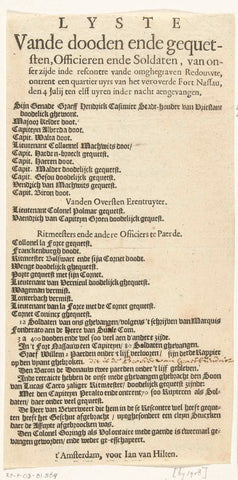 LYSTE
Vande dooden ende gequet-
sten, Officieren ende Soldaten, van on-
ser zijde inde rescontre vande omghegraven Redouvte,
ontrent een quartier uyrs van het veroverde Fort Nassau,
den 4 Julij ten elf uyren inder nacht aengevangen.
Sijn Genade Graeff Hendrick Casimier Stadt-houder van Vrieslant
doodelijck ghewont.
Majoor Kelder doot.
Capiteyn Alberda doot.
Capit. Walta doot.
Lieutenant Collonnel Machwits doot
Capit. Haeden-broeck gequetst.
Capit. Haeren doot.
Capit. Malder doodelijck gequetst.
Capit. Gesou doodelijck gequetst.
Hendrich van Machwits gequetst.
Capit. Biron doot.
Vanden Oversten Erentruyter.
Lieutenant Colonel Polmar gequetst.
Vaendrich van Capiteyn Groen doodelijck gequetst.
Ritmeesters ende andere Officiers te Paerde.
Collonel la Forçe gequetst.
Franckenburgh doodt.
Ritmeester Bulswaer ende sijn Cornet doodt.
Wenge doodelijck ghequetst.
Pope gequetst met sijn Cornet.
Lieutenant van Verneuil doodelijck gequetst.
Wageman vermist.
Lonterbach vermist.
Lieutenant van la Force met de Cornet gequetst.
Cornet Convincx ghequetst.
12 Soldaten van ons ghevangen, volgens 't schrijven van Marquis
Fonderato aan de Heere van Sinte Com.
3 a 400 dooden ende wel soo veel aen d'andere zijde.
In 't Fort Nassau twee Capiteyn, 80 Soldaten ghevangen.
Graef Willem 2 Paerden onder 't lijf verlooren, sijn derde Rappier
Den Baron de Bonavis twee paerden onder 't lijf gebleven.
Inde retraicte hebben de onse mede ghevangen ghebracht den Soon
van Lucas Cayro zaliger Ritmeester, doodelijck gequetst zijnde:
Met den Capiteyn Peralto ende ontrent 70 soo Ruyteren als Sol-
daten, daer onder veel gequetst.
De Heer van Beverweert die hem in de se Rescontre wel heeft geque-
ten heeft het Geschut afgebracht, uytgesondert een cleyn Stuckxken
daer de Affuyte af gebroocken was.
Den Colonel Goningh als Volontarie mede gaende is tweemael ge-
vangen geworden, ende weder ge-eschapeert.
t'Amsterdam, voor Ian van Hilten.